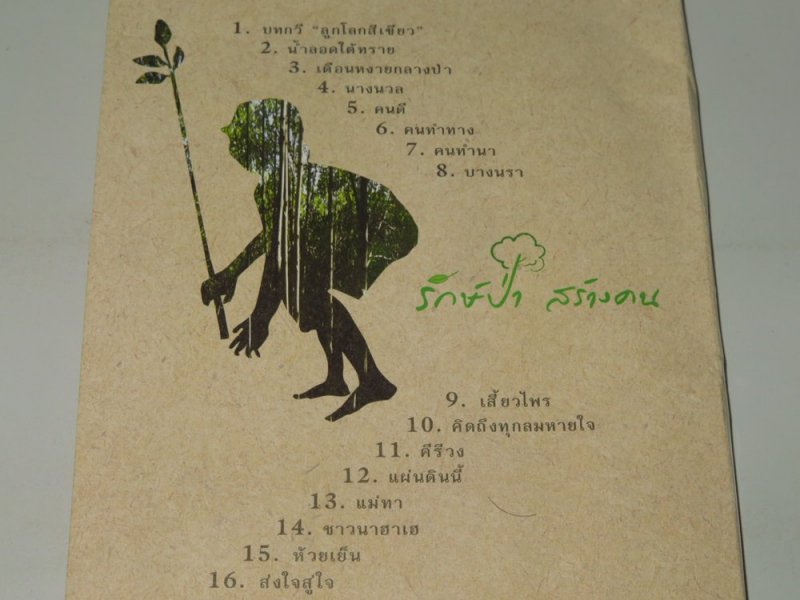 1. บทกวี “ลูกโลกสีเขียว”
2. น้ำลอดใต้ทราย
3. เดือนหงายกลางป่า
4. นางนวล
5. คนดี
6. คนทำทาง
7. คนทำนา
8. บางนรา
รักษ์ป่า สร้างคน
9. เสี้ยวไพร
10. คิดถึงทุกลมหายใจ
11. คีรีวง
12. แผ่นดินนี้
13. แม่ทา
14. ชาวนาฮาเฮ
15. ห้วยเย็น
16. ส่งใจสู่ใจ